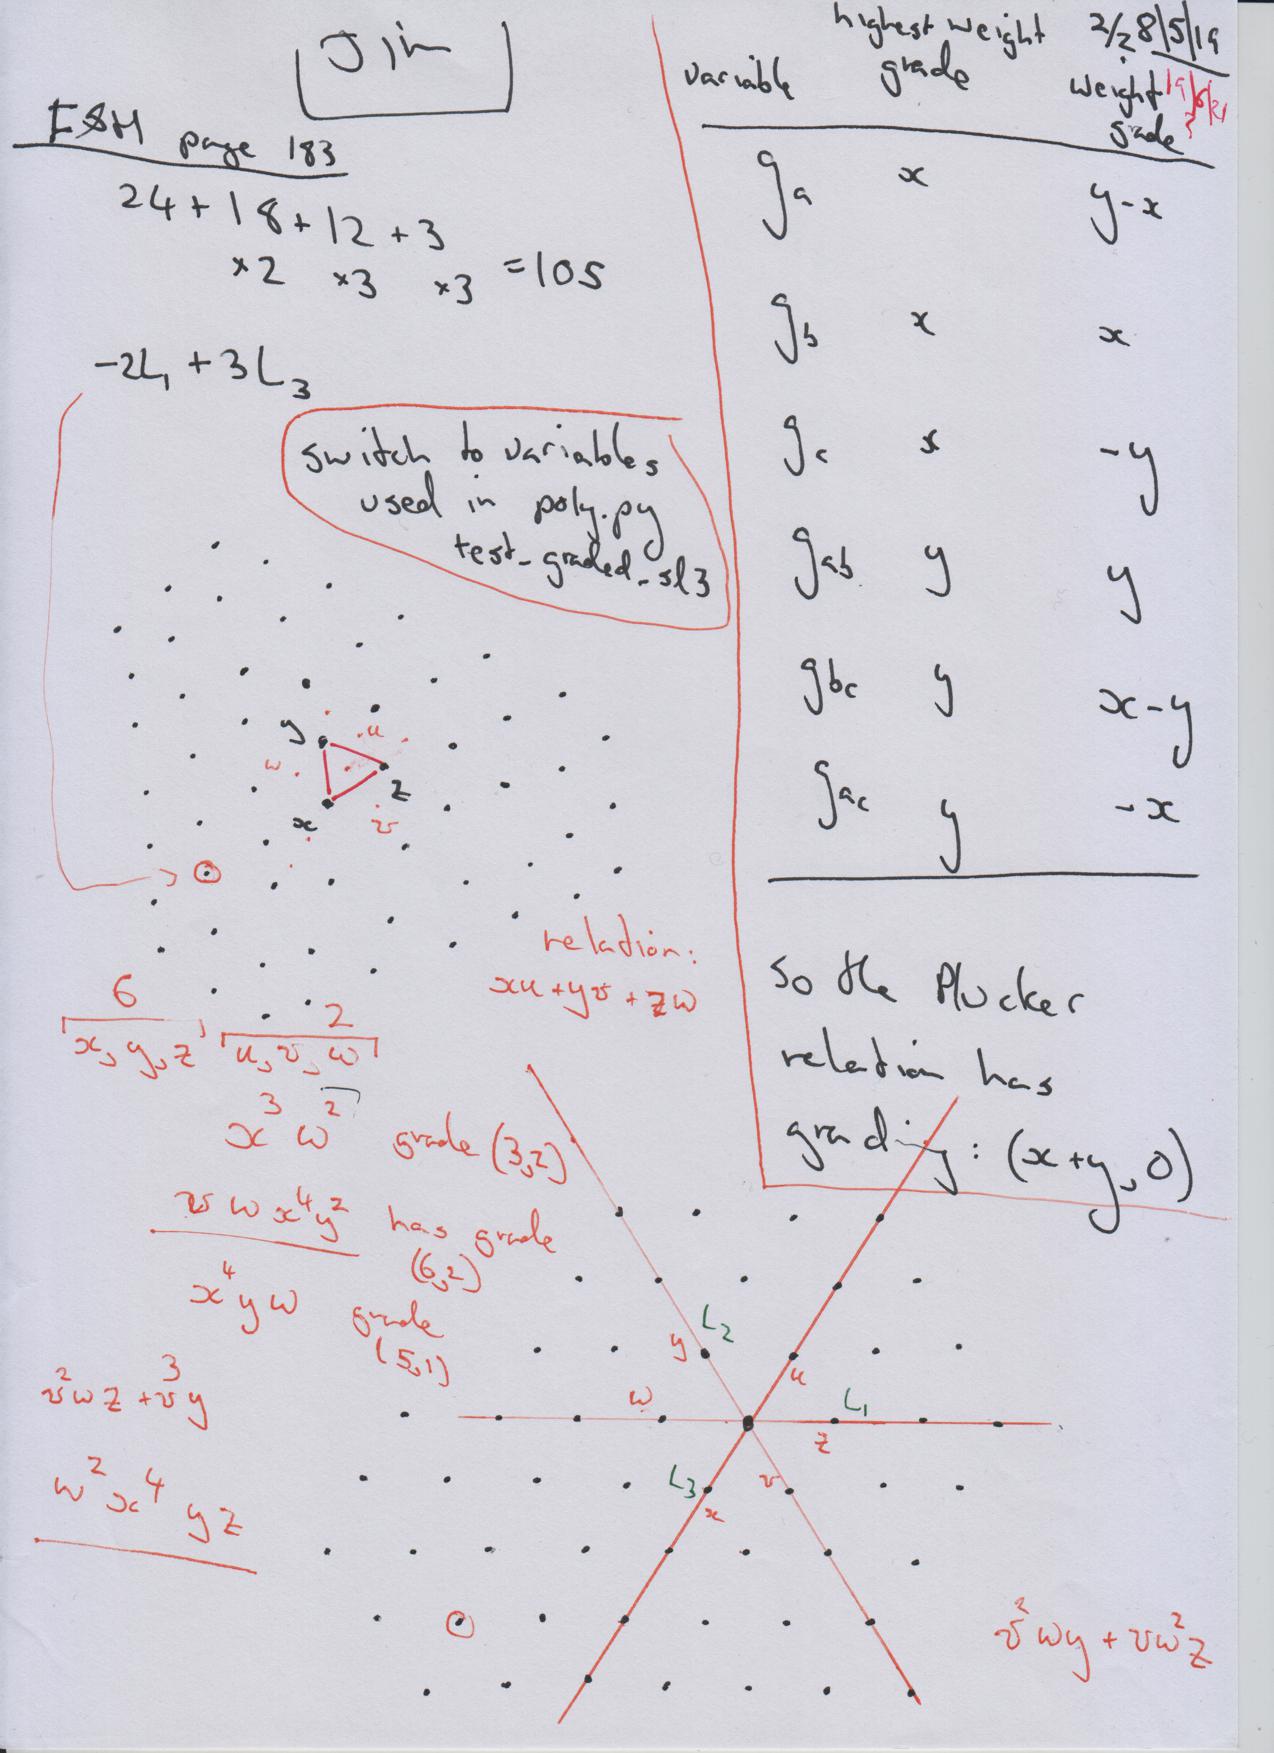 Jim
page 183
24 + 18 + 12 + 3
×2 ×3 ×3 = 105
-2L₁ + 3L₃
switch to variables
used in poly.py
test_graded_sl3
y
u
w
z
x
v
relation:
xu + yv + zw
6
2
x, y, z u, v, w
x³ w² grade (3,2)
v w x⁴y² has grade
(6,2)
x⁴ y w grade
(5,1)
v²wz + v³y
w² x⁴ y z
highest weight 2/28/5/19
variable grade weight
grade
gₐ x y-x
g_b x x
g_c x -y
g_ab y y
g_bc y x-y
g_ac y -x
so the Plucker
relation has
grading: (x+y, 0)
L₂
y
u
w
L₁
z
L₃
v
x
v²wy + vw²z